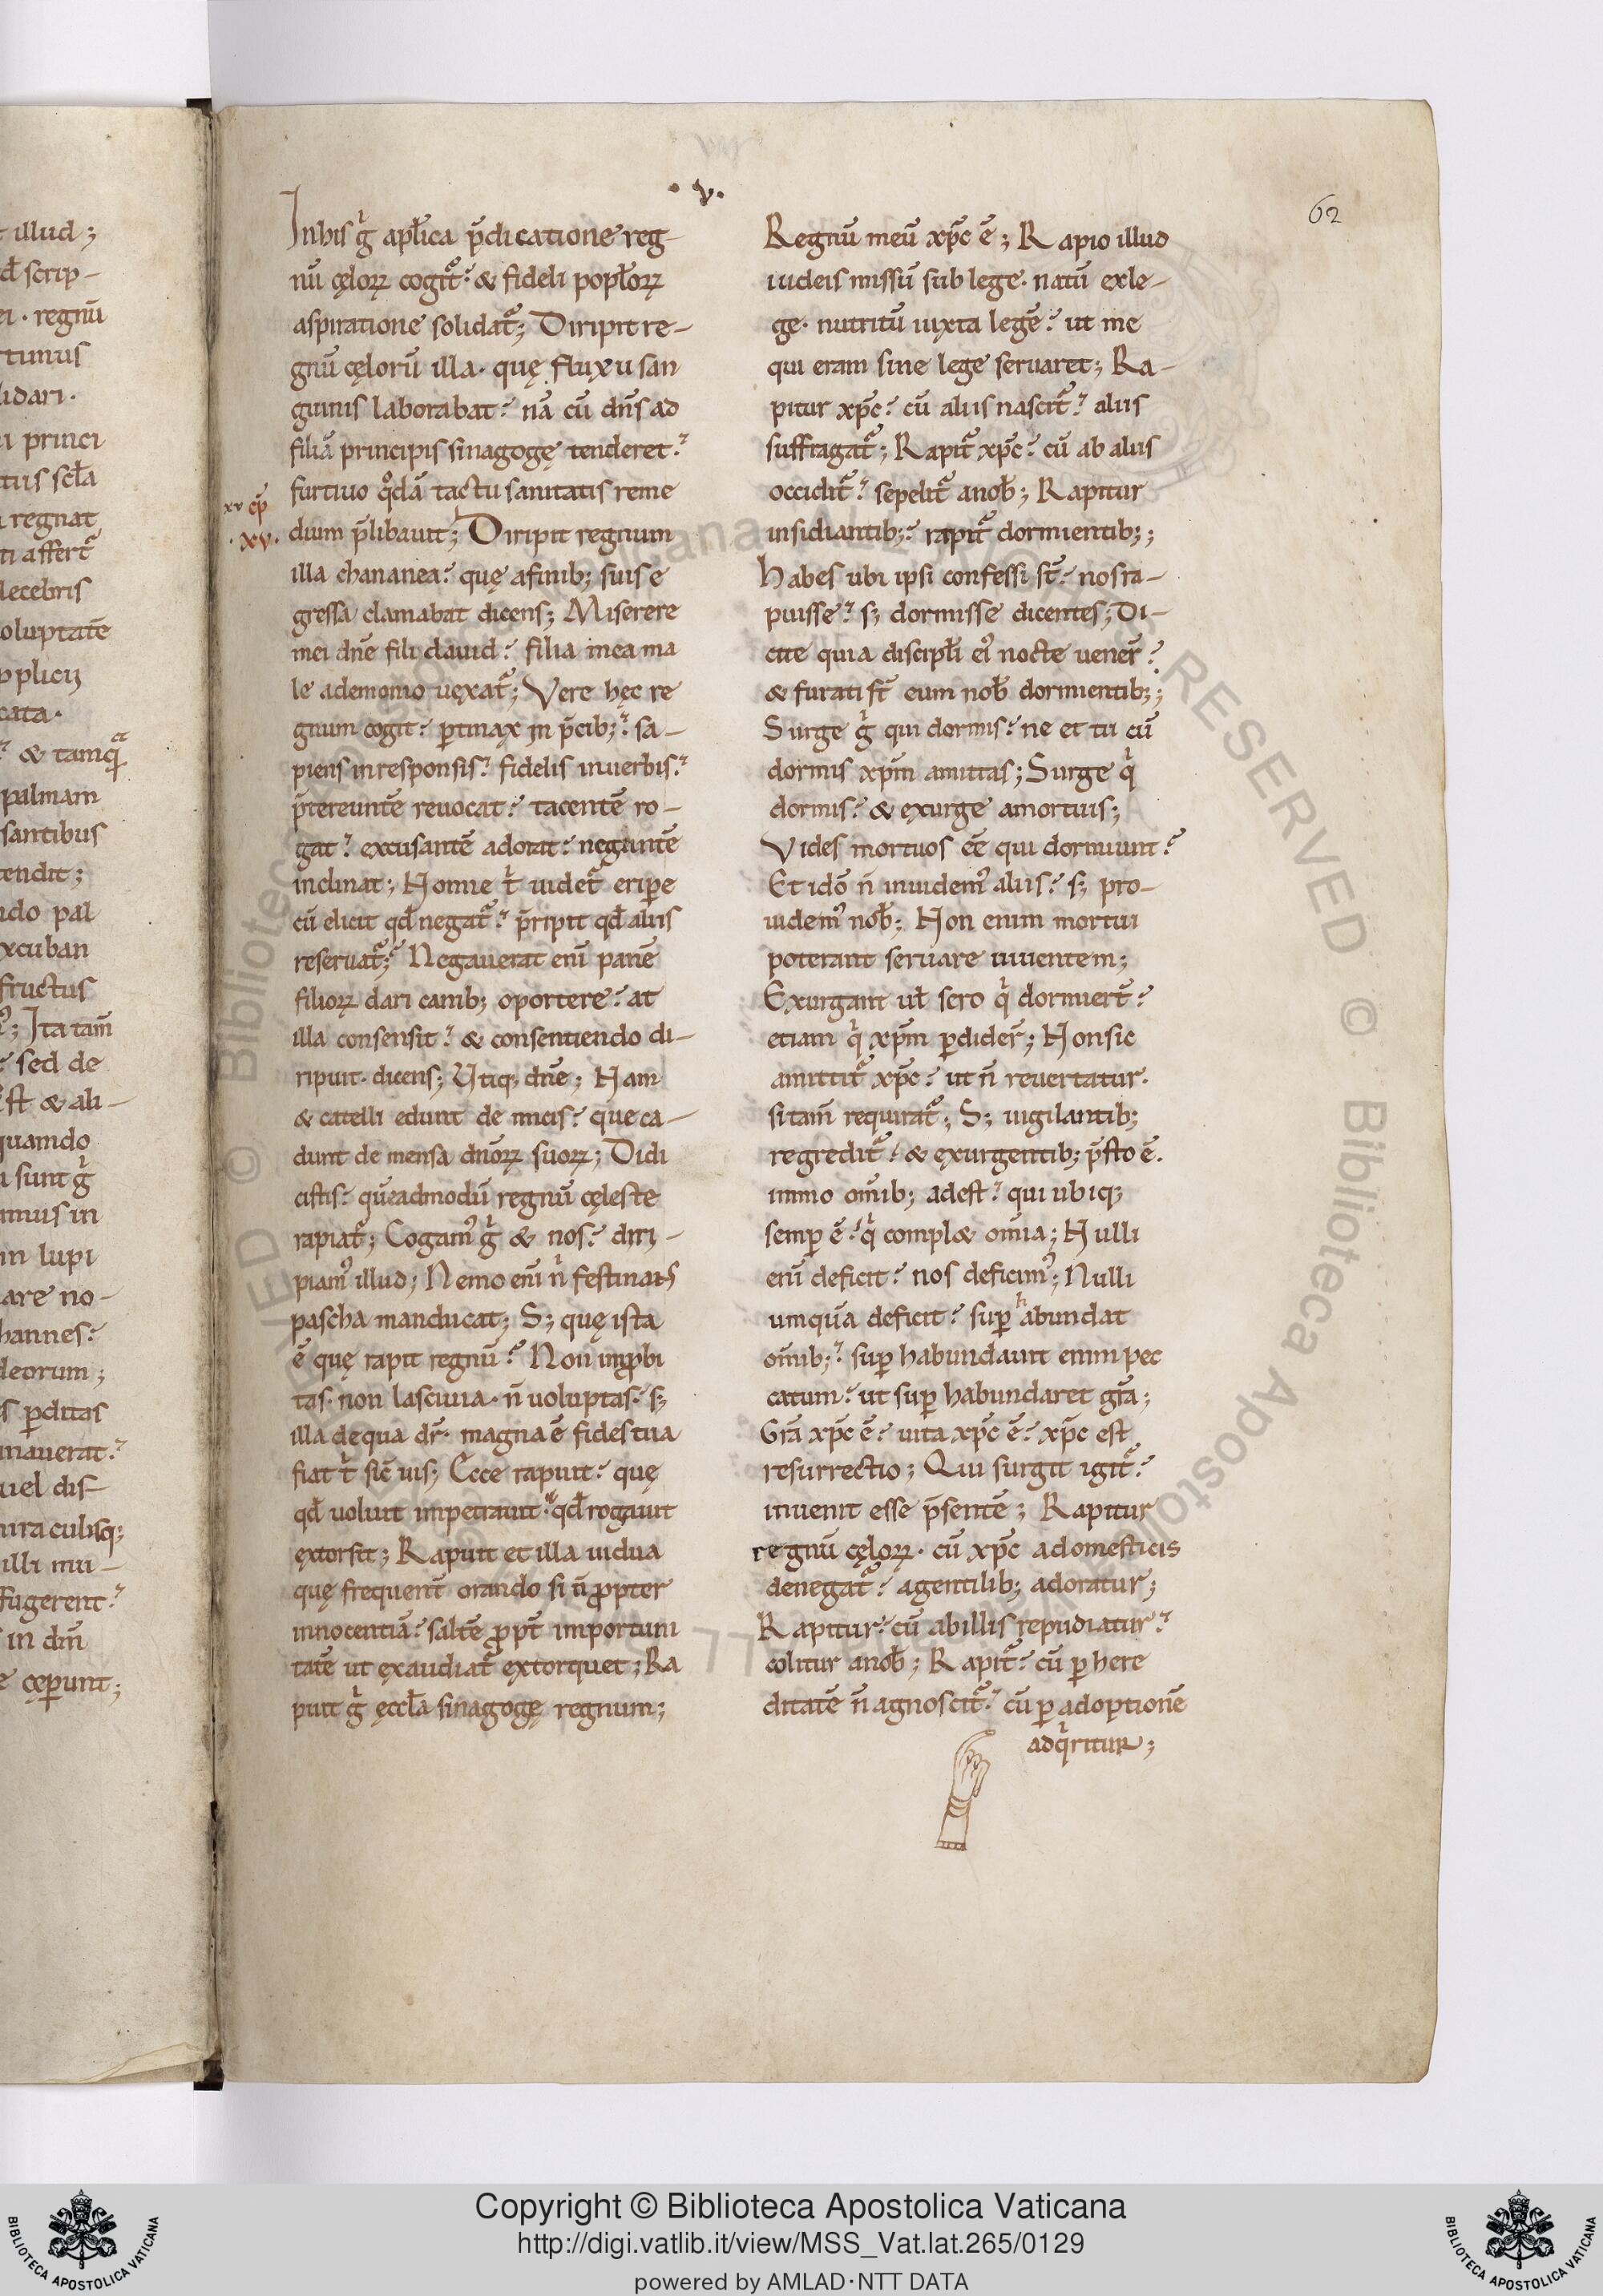 t illud ;
d̄ scrip-
ei · regnū
rtunus
lidari ·
u princi
tus scła
a regnat
ti affert᷑
lecebris
oluptatē
pplicij
cata ·
& tamqͣ
palmam
santibus
tendit ;
ndo pal
xcuban
fructus
; Ita tam̄
sed de
st & ali-
quando
i sunt gͥ
imus in
in lupi
are no-
hannes ?
deorum ;
s ꝑditas
inauerat
uel dis-
iraculisq;
illi mu-
ffugerent
in dn̄i
e cęꝑunt ;
· v ·
62
In his gͥ apłica p̄dicatione reg-
nū cęloꝝ cogit᷑ & fideli popłoꝝ
aspiratione solidat᷑; Diripit re-
gnū cęlorū illa · quę fluxu san
guinis laborabat nā cū dn̄s ad
filiā principis sinagogę tenderet
furtiuo qͦdā tactu sanitatis reme
xv ep̄
· xv ·
dium p̄libauit; Diripit regnum
illa chananea quę afinib; suis e
gressa clamabat dicens; Miserere
mei dn̄e fili dauid filia mea ma
le ademonio uęxat᷑; Vere hęc re
gnum cogit ꝑtinax in p̄cib; sa-
piens inresponsis fidelis inuerbis
p̄tereuntē reuocat tacentē ro-
gat excusantē adorat negantē
inclinat; Nonne tͥ uidet᷑ eriꝑe
cū elicit qd̄ negat᷑ p̄ripit qd̄ aliis
reseruat᷑; Negauerat eni᷑ panē
filioꝝ dari canib; oportere at
illa consensit & consentiendo di-
ripuit · dicens; Utiq; dn̄e; Nam
& catelli edunt de micis que ca-
dunt de mensa dn̄oꝝ suoꝝ; Didi
cistis quēadmodū regnū cęleste
rapiat᷑; Cogamꝰ gͥ & nos diri-
piamꝰ illud; Nemo eni᷑ nͥ festinans
pascha manducat; S; quę ista
ē quę rapit regnū ? Non inꝓbi
tas · non lasciuia · n̄ uoluptas · s;
illa dequa dr̄ · magna ē fides tua
fiat tͥ sic̄ uis; Ecce rapuit quę
qd̄ uoluit impetrauit qd̄ rogauit
ęxtorsit; Rapuit et illa uidua
quę frequent̄ orando si n̄ ꝓpter
innocentiā saltē ꝓpt̄ importuni
tatē ut ęxaudiat᷑ ęxtorquet; Ra
puit gͥ ęccła sinagogę regnum;
Regnū meū xp̄c ē; Rapio illud
iudeis missū sub lege · natū exle-
ge · nutritū iuxta legē ut me
qui eram sine lege seruaret; Ra-
pitur xp̄c cū aliis nascit᷑ aliis
suffragat᷑; Rapit᷑ xp̄c cū ab aliis
occidit᷑ sepelit᷑ anob̄; Rapitur
insidiantib; rapit᷑ dormientib; ;
Habes ubi ipsi confessi st̄ nos ra-
puisse s; dormisse dicentes; Di-
cite quia discipłi eiꝰ nocte uener̄
& furati st̄ eum nob̄ dormientib; ;
Surge gͥ qui dormis ne et tu cū
dormis xp̄m amittas; Surge qͥ
dormis & exurge amortuis;
Vides mortuos ēē qui dormiunt ?
Et idō n̄ inuidemꝰ aliis s; pro-
uidemꝰ nob̄; Non enim mortui
poterant seruare uiuentem;
Exurgant uł sero qͥ dormiert̄
etiam qͥ xp̄m ꝑdider̄; Non sic
amittit᷑ xp̄c ut n̄ reuertatur ·
si tam̄ requirat᷑; S; uigilantib;
regredit᷑ & ęxurgentib; p̄sto ē ·
immo om̄ib; adest qui ubiq;
semꝑ ē qͥ compl& om̄ia; Nulli
eni᷑ deficit nos deficimꝰ; Nulli
umquā deficit suꝑ habundat
om̄ib; suꝑ habundauit enim pec
catum ut suꝑ habundaret gr̄a;
Gr̄a xp̄c ē uita xp̄c ē xp̄c est
resurrectio; Qui surgit igit᷑
inuenit esse p̄sentē; Rapitur
regnū cęloꝝ · cū xp̄c adomesticis
denegat᷑ agentilib; adoratur;
Rapitur cū abillis repudiatur
colitur anob̄; Rapit᷑ cū ꝑ here
ditatē n̄ agnoscit᷑ cū ꝑ adoptionē
adqͥritur;
Copyright © Biblioteca Apostolica Vaticana
http://digi.vatlib.it/view/MSS_Vat.lat.265/0129
powered by AMLAD·NTT DATA
BIBLIOTECA APOSTOLICA VATICANA
BIBLIOTECA APOSTOLICA VATICANA